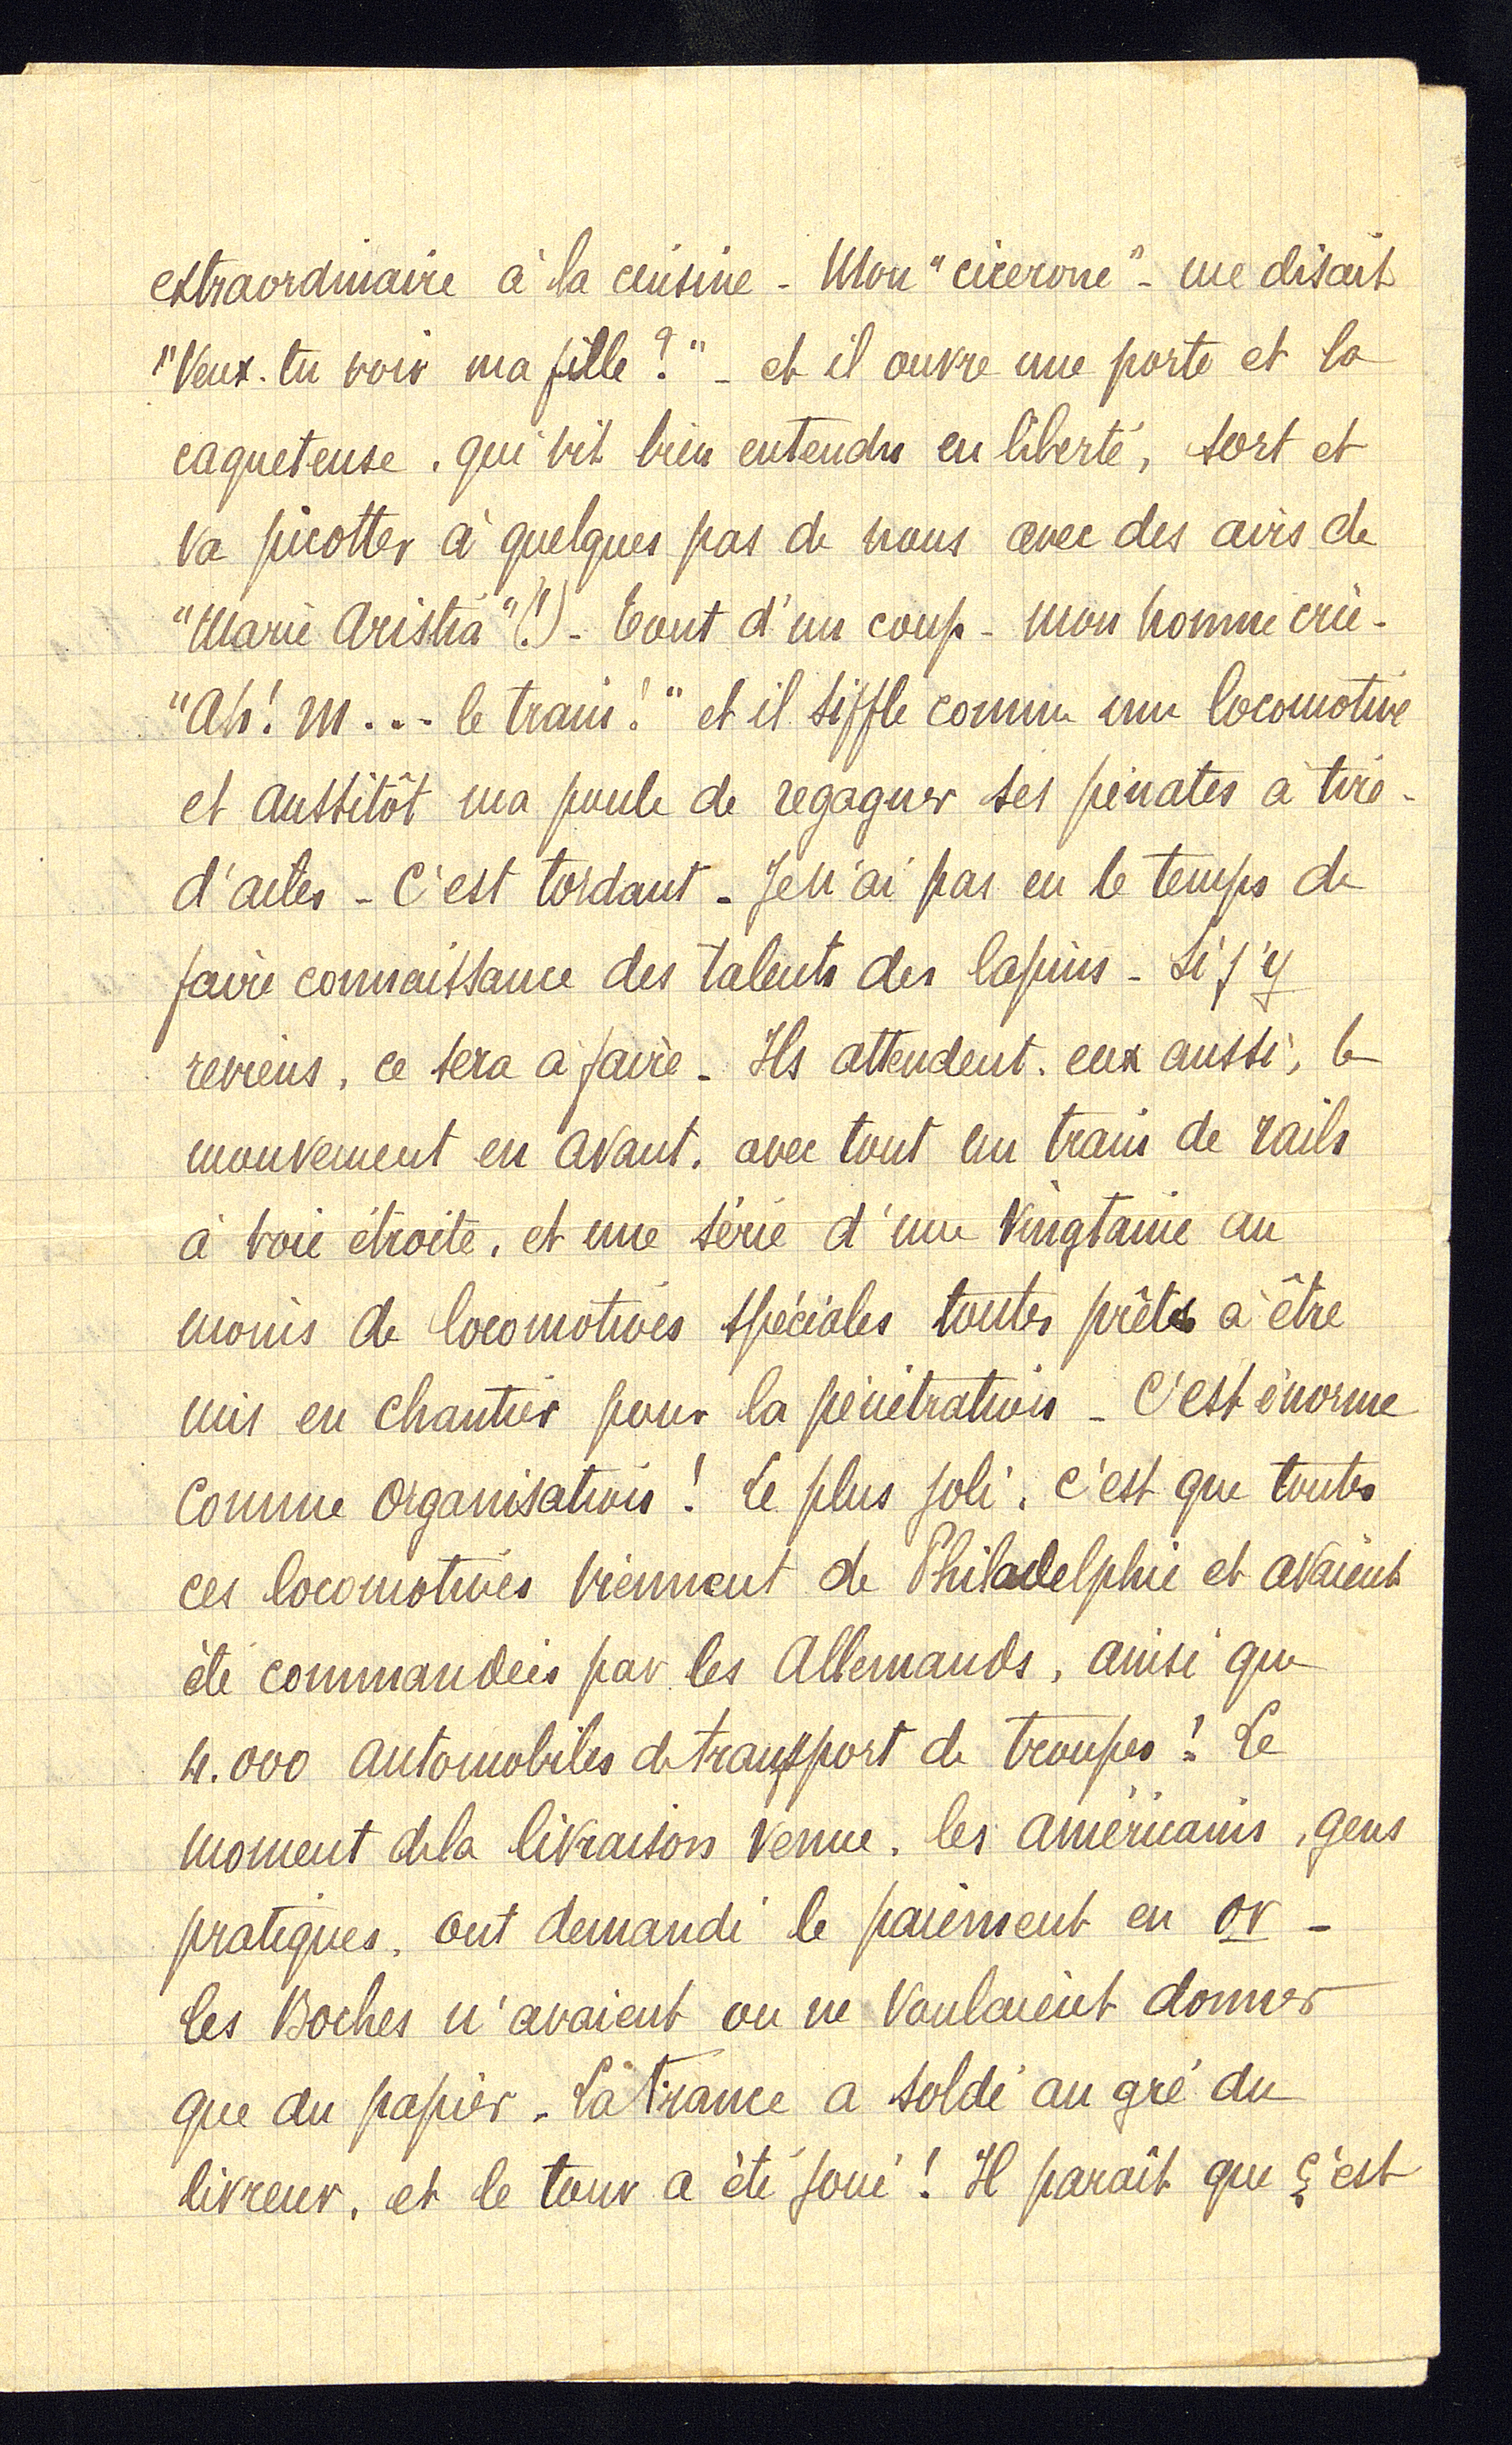 extraordinaire à la cuisine - Mon "cicerone" - me disait
"Veux-tu voir ma fille ?" - et il ouvre une porte et la
caqueteuse, qui vit bien entendu en liberté, sort et
va picotter à quelques pas de nous avec des airs de
"Marie (!) - Tout d'un coup - mon homme crie -
"Ah ! M... le train !" et il siffle comme une locomotive
et aussitôt ma poule de regagner ses pénates à tire-
d'ailes - C'est tordant - Je n'ai pas eu le temps de
faire connaissance des talents des lapins - Si j'y
reviens, ce sera à faire - Ils attendent, eux aussi, le
mouvement en avant, avec tout un train de rails
à voie étroite, et une série d'une vingtaine au
moins de locomotives spéciales toutes prêtes à être
mis en chantier pour la pénétration - C'est énorme
comme organisation ! Le plus joli, c'est que toutes
ces locomotives viennent de Philadelphie et avaient
été commandées par les Allemands, ainsi que
4.000 automobiles de transport de troupes ! Le
moment de la livraison venue, les américains, gens
pratiques, ont demandé le paiement en or -
les Boches n'avaient ou ne voulaient donner
que du papier - La France a soldé au gré du
livreur, et le tour a été joué ! Il paraît que ç'est